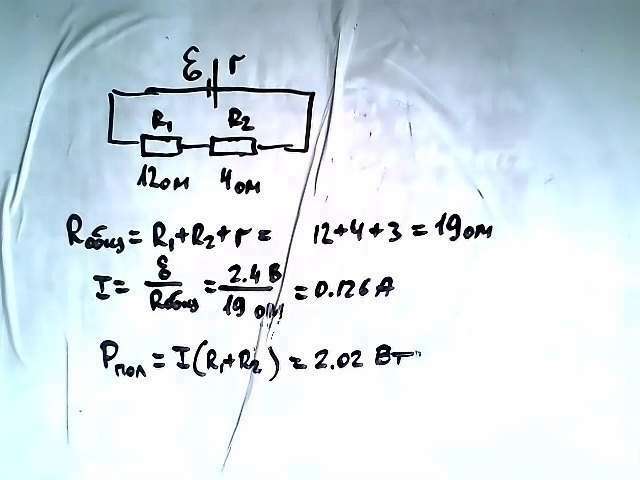 Ɛ r
R₁ R₂
12 ом 4 ом
Rобщ = R₁ + R₂ + r = 12 + 4 + 3 = 19 ом
I = Ɛ/Rобщ = 2.4 В/19 ом = 0.126 А
Pпол = I(R₁+R₂) = 2.02 Вт